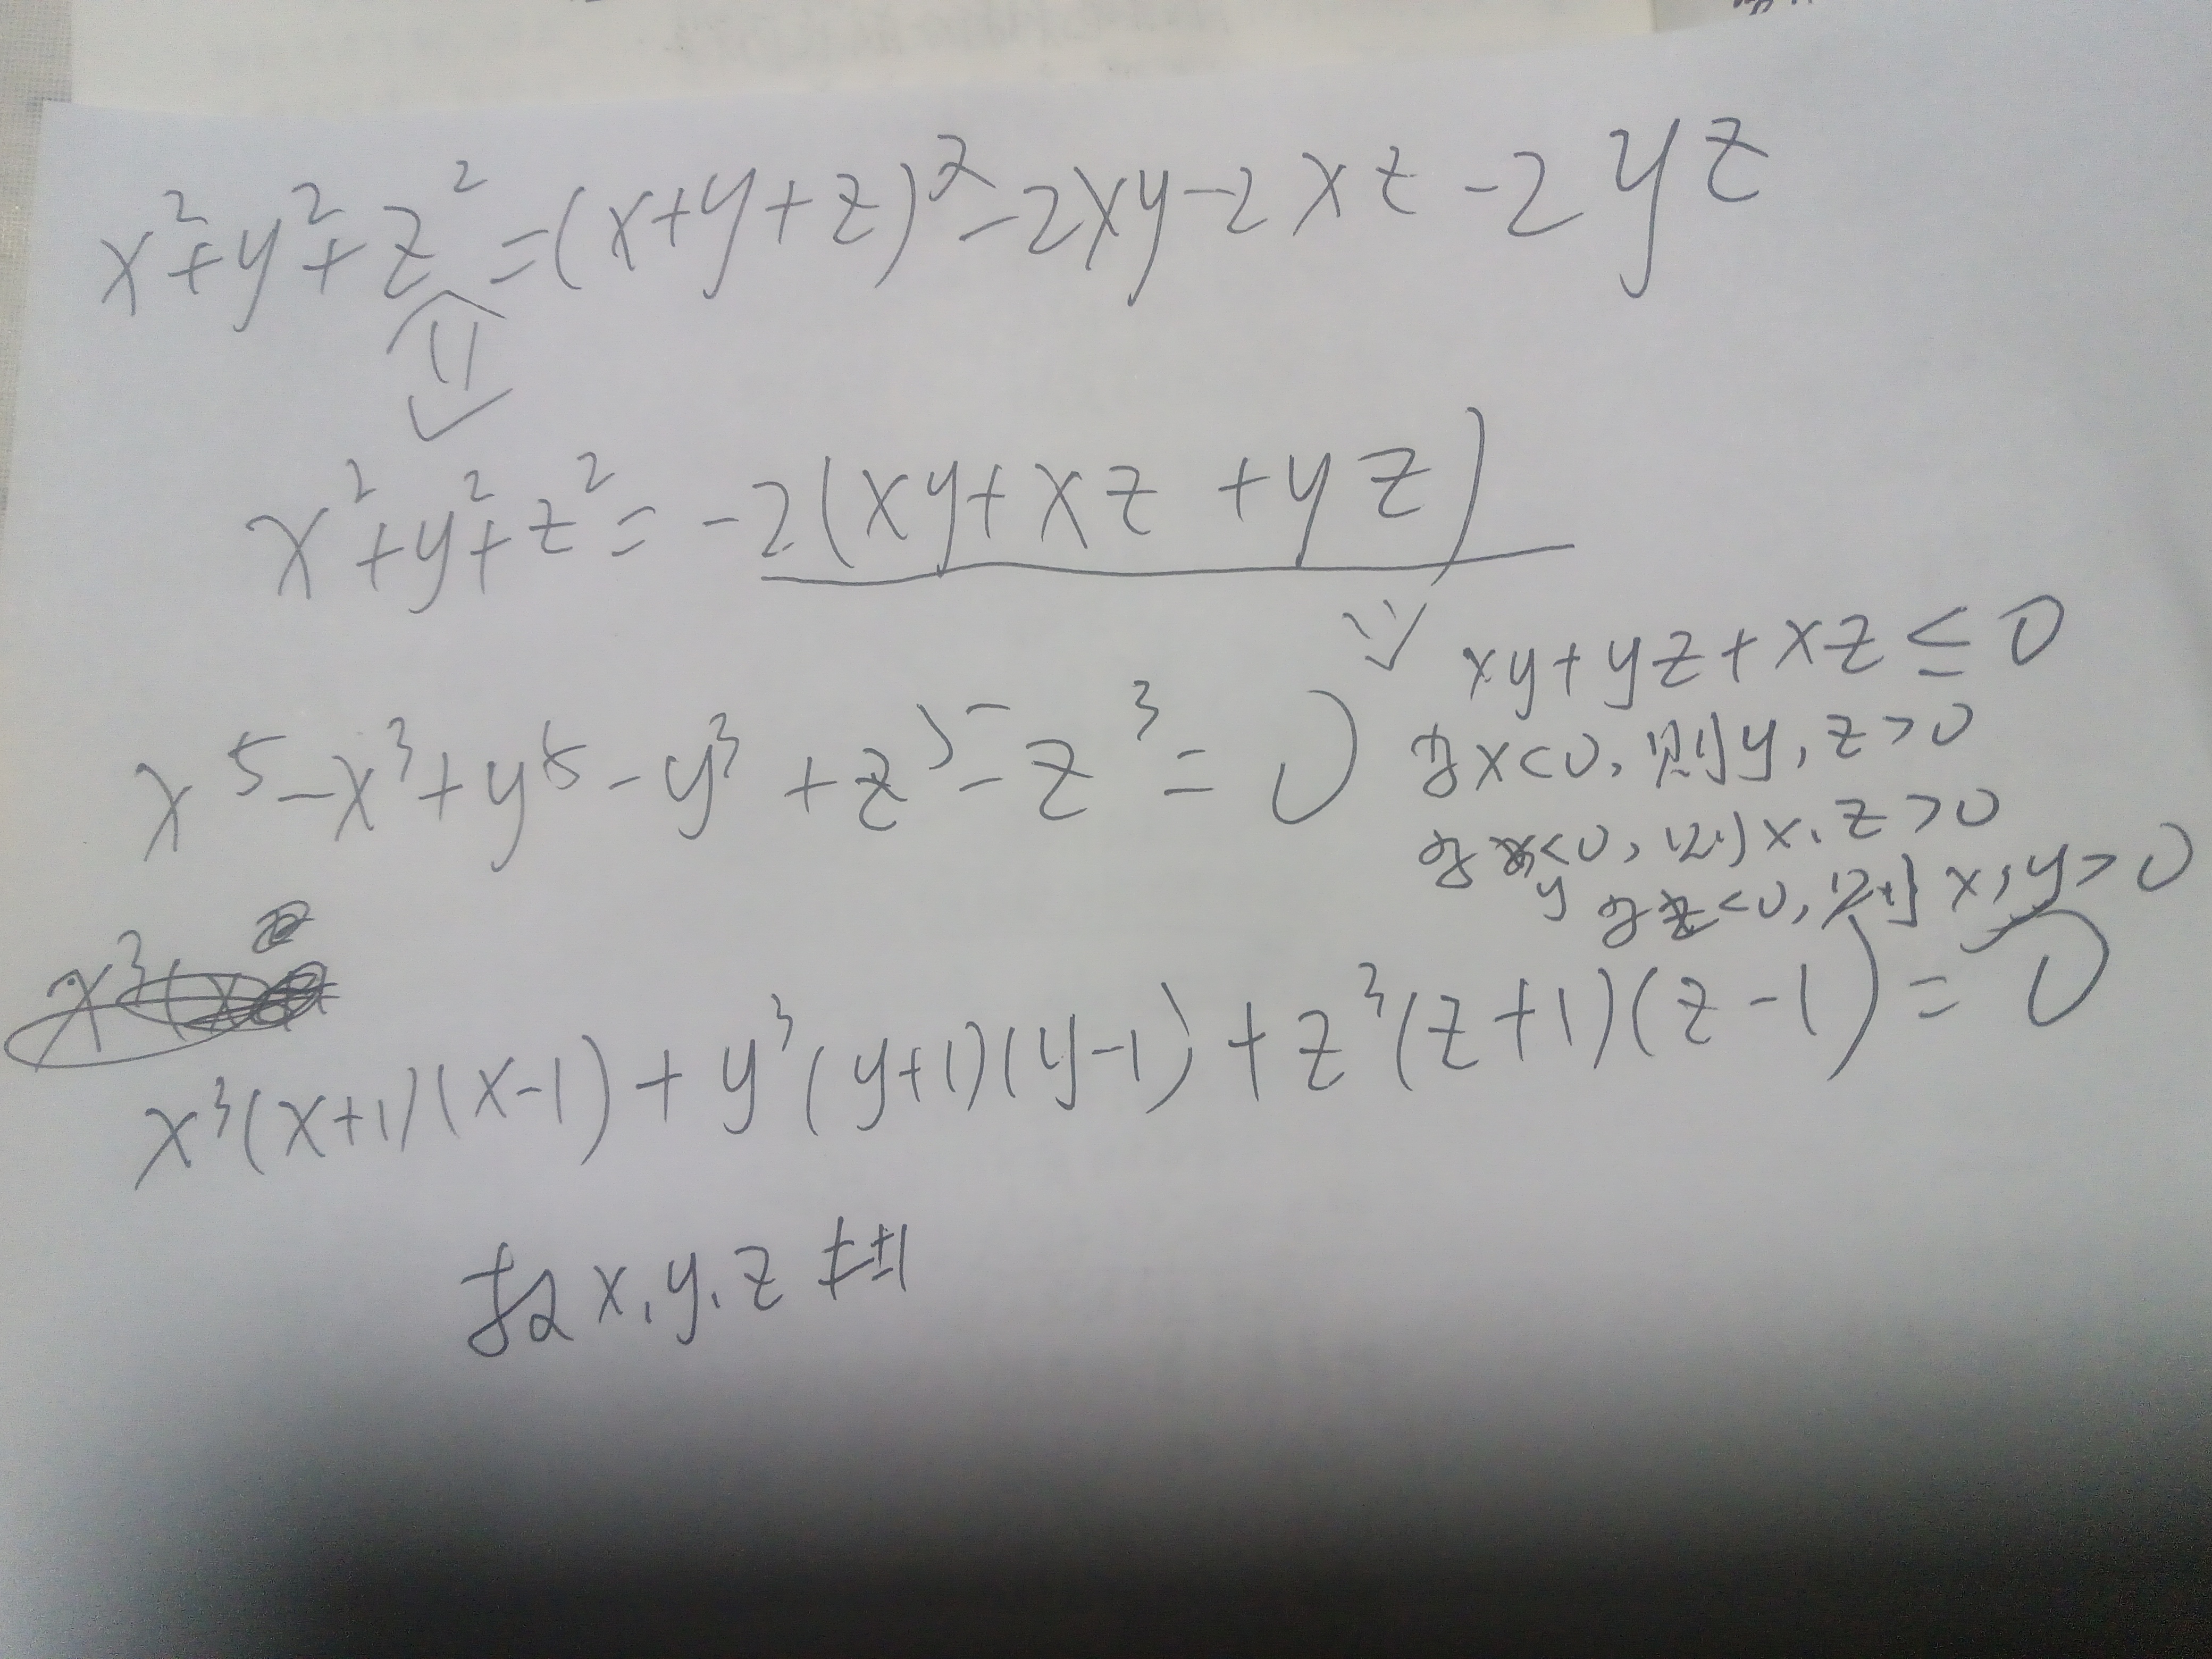 x²+y²+z²=(x+y+z)²-2xy-2xz-2yz
⇕
x²+y²+z²=-2(xy+xz+yz)
xy+yz+xz≤0
x⁵-x³+y⁵-y³+z⁵-z³=0
若x<0,则y,z>0
若y<0,则x,z>0
若z<0,则x,y>0
x³(x+1)(x-1)+y³(y+1)(y-1)+z³(z+1)(z-1)=0
故x,y,z≠±1